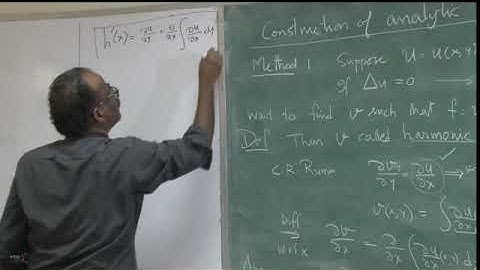 h'(x) = ∂u/∂y + ∂/∂x ∫ ∂u/∂x dy
Construction of analytic
Method 1 Suppose u = u(x, y)
of Δu = 0
want to find v such that f =
Def Then v called harmonic
C.R. ∂v/∂y = ∂u/∂x
v(x,y) = ∫ ∂u/∂x
Diff w.r.t x ∂v/∂x = ∂/∂x ∫ ∂u/∂x (x,y) d